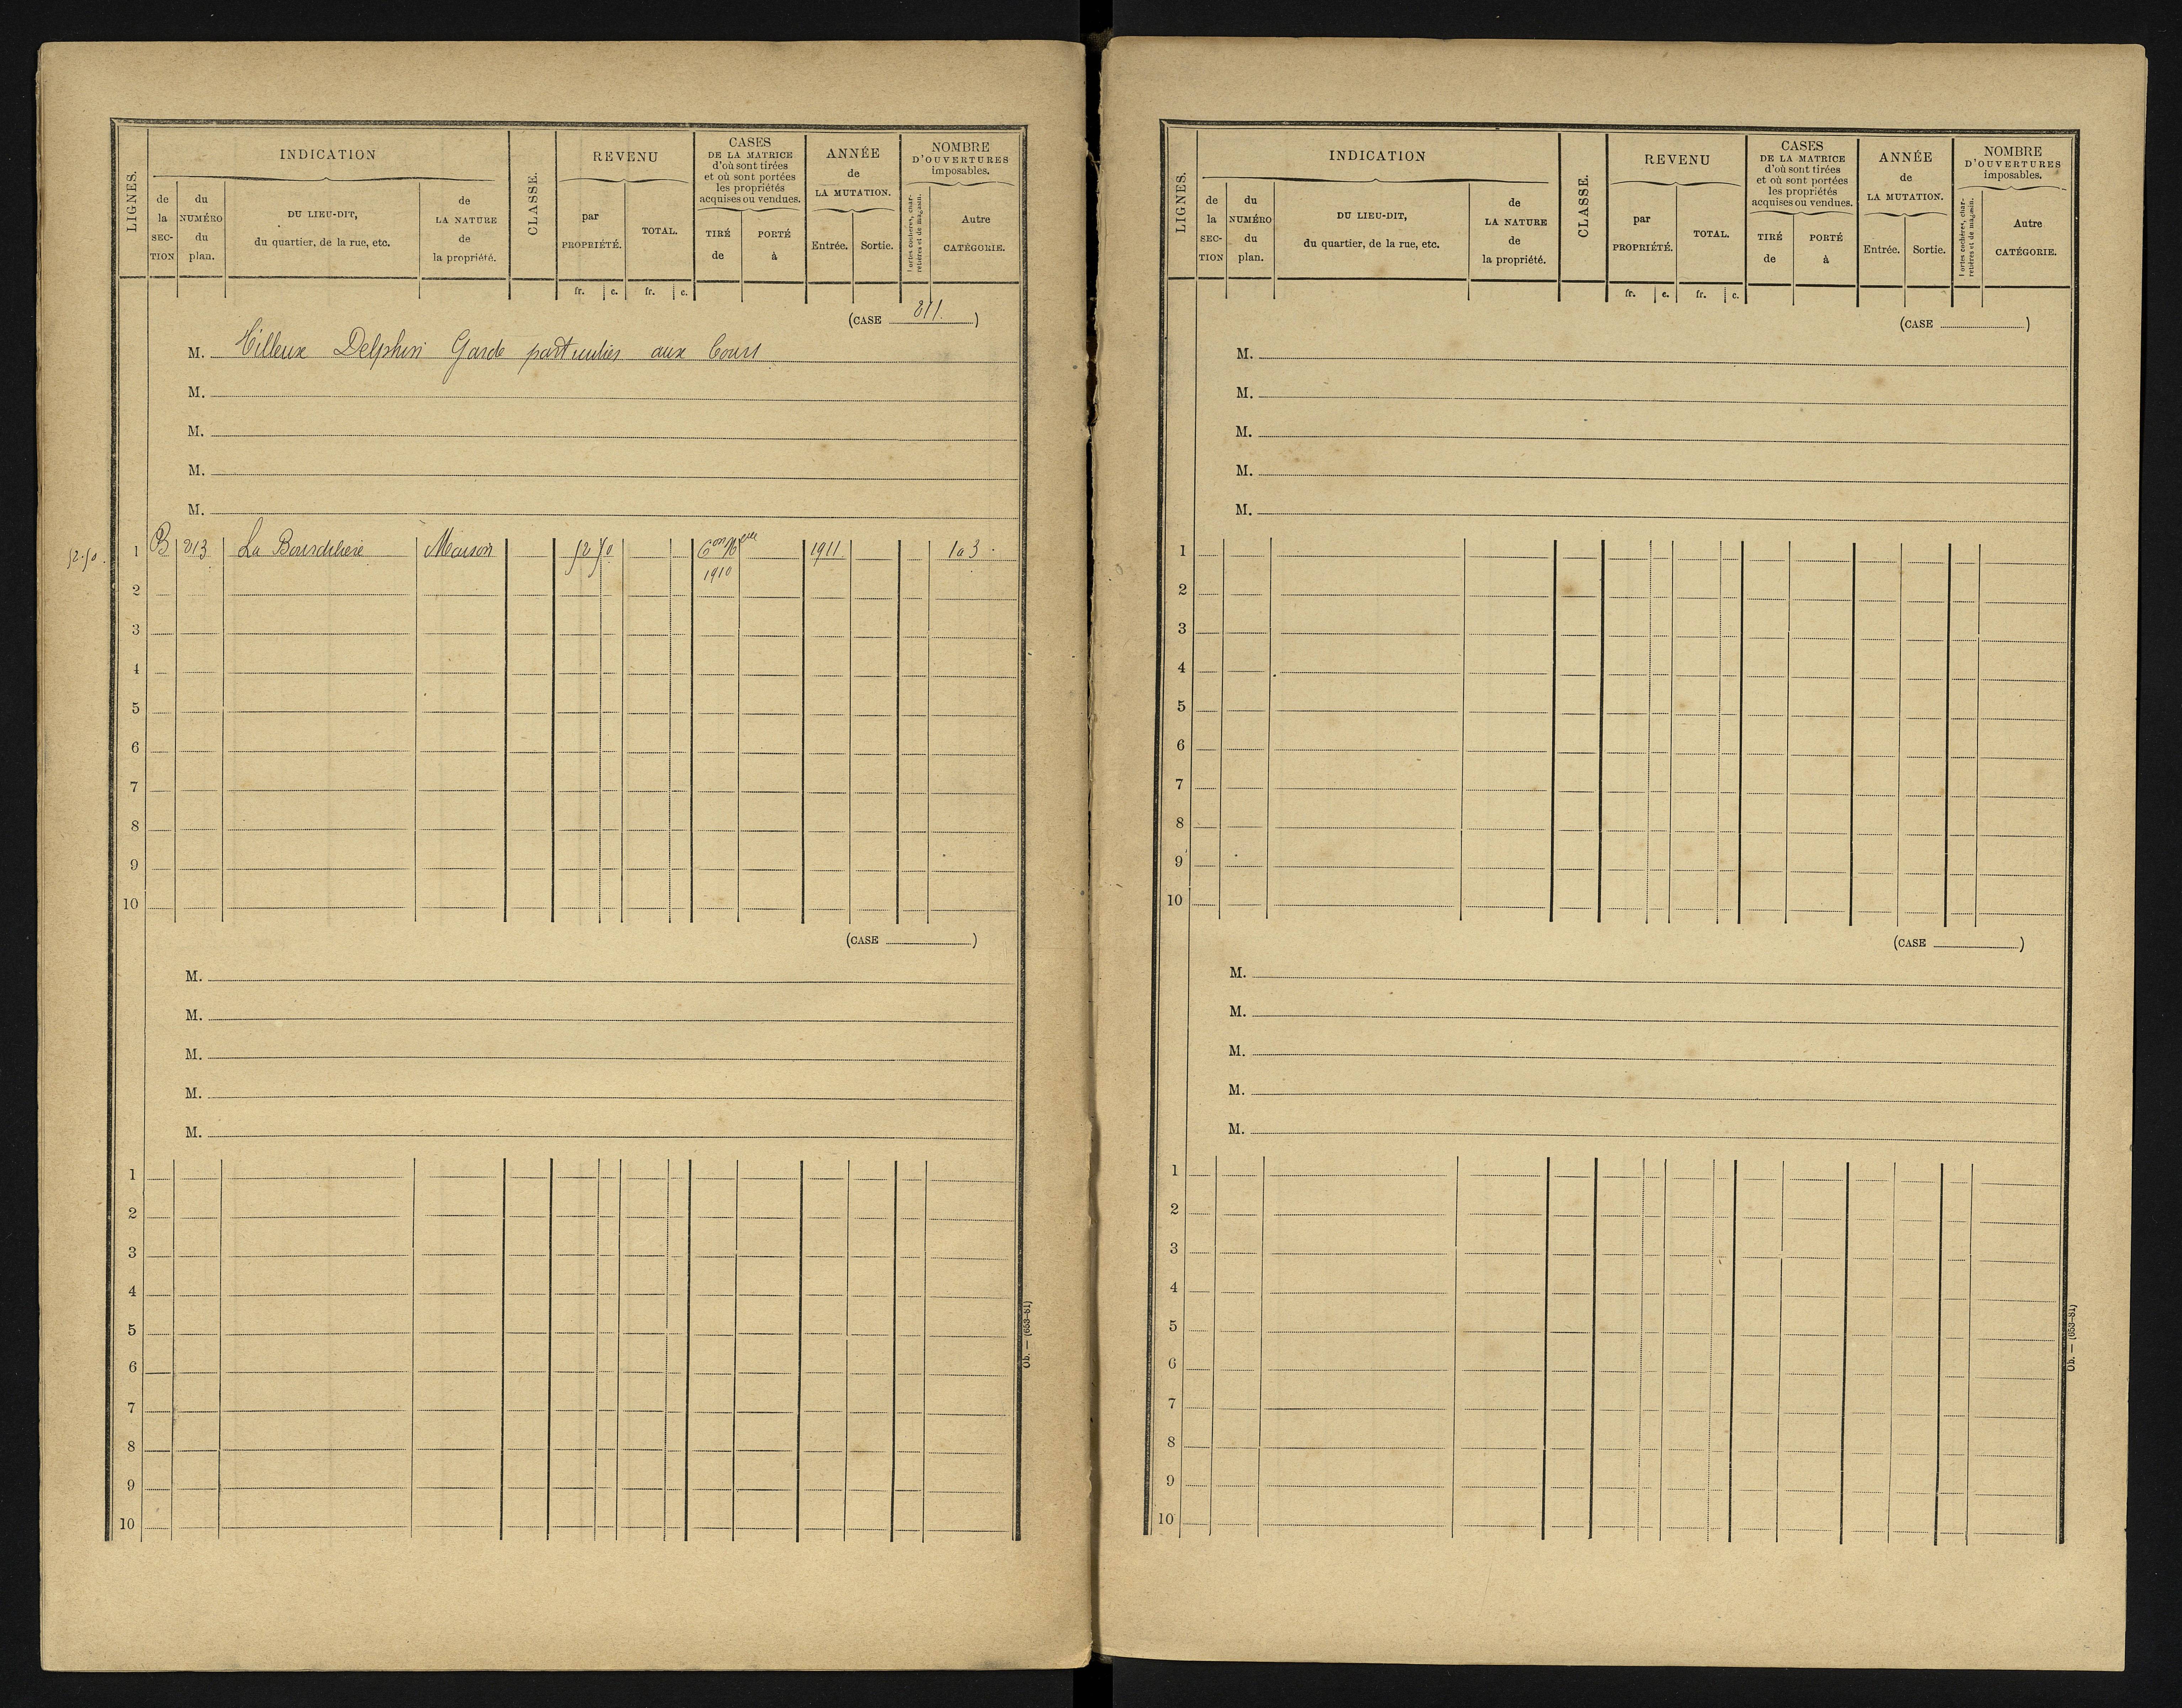 LIGNES.
INDICATION
de la SECTION
du NUMÉRO du plan.
DU LIEU-DIT, du quartier, de la rue, etc.
de LA NATURE de la propriété.
CLASSE.
REVENU
par PROPRIÉTÉ.
TOTAL.
fr. c. fr. c.
CASES DE LA MATRICE d'où sont tirées et où sont portées les propriétés acquises ou vendues.
TIRÉ de
PORTÉ à
ANNÉE de LA MUTATION.
Entrée. Sortie.
NOMBRE D'OUVERTURES imposables.
Portes cochères, charretières et de magasin.
Autre CATÉGORIE.
(CASE 811.)
M. Delphin Garde particulier aux
M.
M.
M.
M.
52.50. 1 B 213 La Maison 52 50 1911 1 à 3.
1910
2
3
4
5
6
7
8
9
10
(CASE )
M.
M.
M.
M.
M.
1
2
3
4
5
6
7
8
9
10
Ob. — (653-81)
LIGNES.
INDICATION
de la SECTION
du NUMÉRO du plan.
DU LIEU-DIT, du quartier, de la rue, etc.
de LA NATURE de la propriété.
CLASSE.
REVENU
par PROPRIÉTÉ.
TOTAL.
fr. c. fr. c.
CASES DE LA MATRICE d'où sont tirées et où sont portées les propriétés acquises ou vendues.
TIRÉ de
PORTÉ à
ANNÉE de LA MUTATION.
Entrée. Sortie.
NOMBRE D'OUVERTURES imposables.
Portes cochères, charretières et de magasin.
Autre CATÉGORIE.
(CASE )
M.
M.
M.
M.
M.
1
2
3
4
5
6
7
8
9
10
(CASE )
M.
M.
M.
M.
M.
1
2
3
4
5
6
7
8
9
10
Ob. — (653-81)